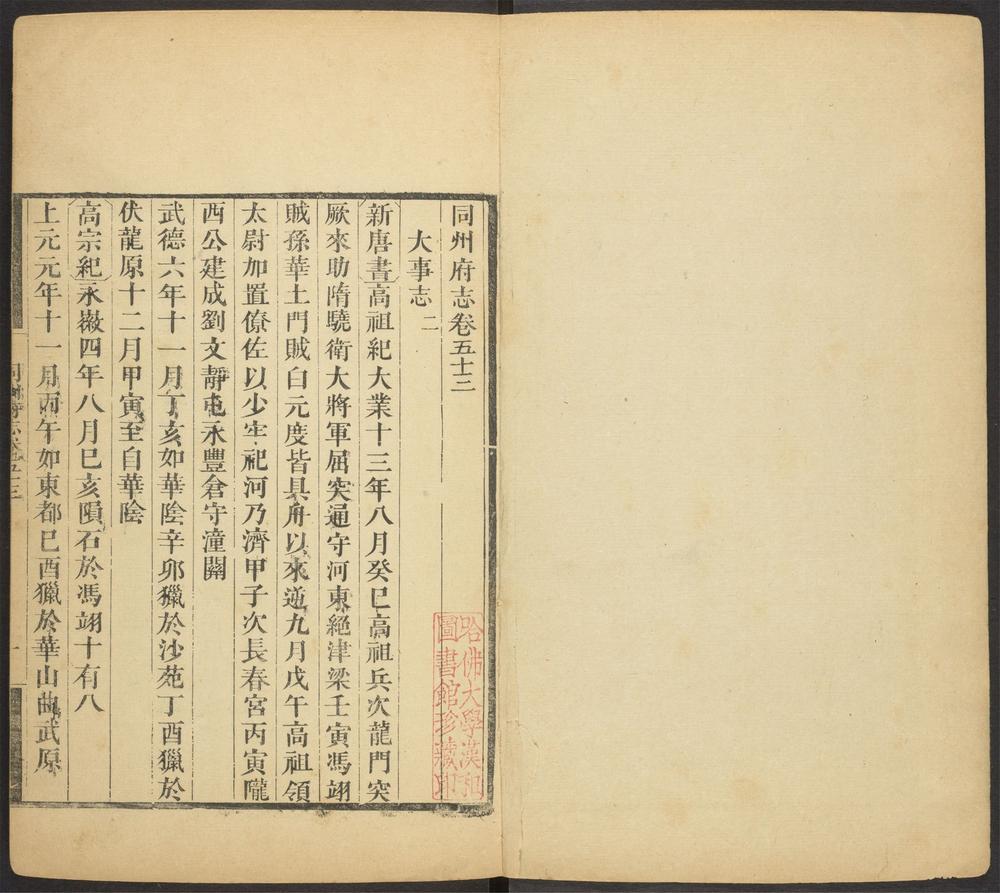 同州府志卷五十三
大事志二
新唐書高祖紀大業十三年八月癸巳高祖兵次龍門突
厥來助隋驍衛大將軍屈突通守河東絕津梁壬寅馮翊
賊孫華土門賊白元度皆具舟以來逆九月戊午高祖領
太尉加置僚佐以少牢祀河乃濟甲子次長春宮丙寅隴
西公建成劉文靜屯永豐倉守潼關
武德六年十一月丁亥如華陰辛卯獵於沙苑丁酉獵於
伏龍原十二月甲寅至自華陰
高宗紀永徽四年八月己亥隕石於馮翊十有八
上元元年十一月丙午如東都己酉獵於華山曲武原
同州府志卷五十三
一
哈佛大學漢和
圖書館珍藏印